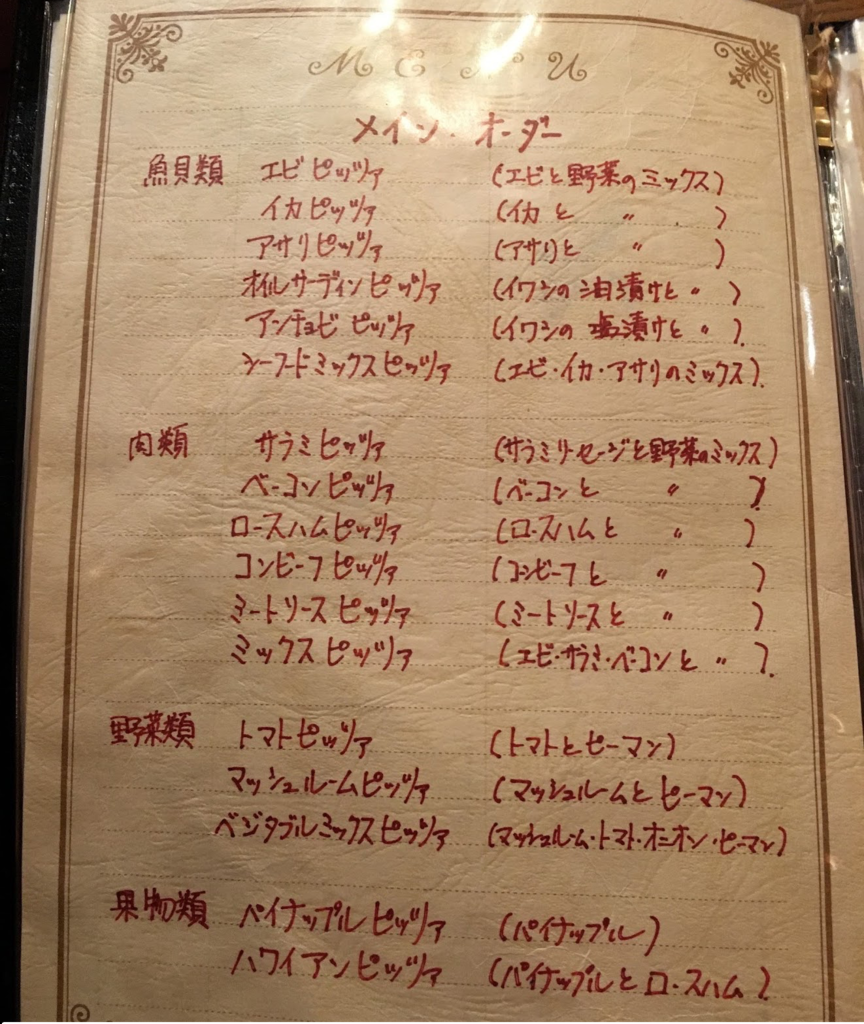 MENU
メイン・オーダー
魚貝類 エビピッツァ (エビと野菜のミックス)
イカピッツァ (イカと 〃 )
アサリピッツァ (アサリと 〃 )
オイルサーディンピッツァ (イワシの油漬けと 〃 )
アンチョビピッツァ (イワシの塩漬けと 〃 )
シーフードミックスピッツァ (エビ・イカ・アサリのミックス)
肉類 サラミピッツァ (サラミソーセージと野菜のミックス)
ベーコンピッツァ (ベーコンと 〃 )
ロースハムピッツァ (ロースハムと 〃 )
コンビーフピッツァ (コンビーフと 〃 )
ミートソースピッツァ (ミートソースと 〃 )
ミックスピッツァ (エビ・サラミ・ベーコンと 〃 )
野菜類 トマトピッツァ (トマトとピーマン)
マッシュルームピッツァ (マッシュルームとピーマン)
ベジタブルミックスピッツァ (マッシュルーム・トマト・オニオン・ピーマン)
果物類 パイナップルピッツァ (パイナップル)
ハワイアンピッツァ (パイナップルとロースハム)